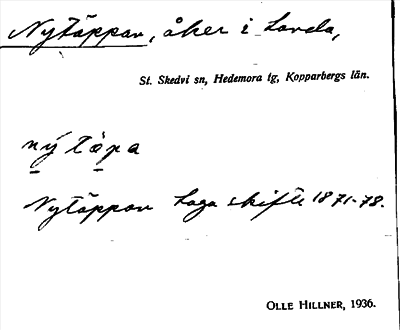 Nytäppan, åker i Landa,
St. Skedvi sn, Hedemora tg, Kopparbergs län.
ný täpa
Nytäppan Laga skifte 1871-78.
OLLE HILLNER, 1936.